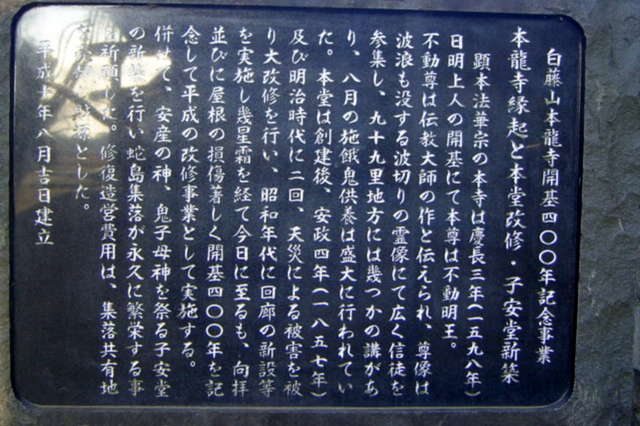 白藤山本龍寺開基四〇〇年記念事業
本龍寺縁起と本堂改修・子安堂新築
顕本法華宗の本寺は慶長三年(一五九八年)
日明上人の開基にて本尊は不動明王。
不動尊は伝教大師の作と伝えられ、尊像は
波浪も没する波切りの霊像にて広く信徒を
参集し、九十九里地方には幾つかの講があ
り、八月の施餓鬼供養は盛大に行われてい
た。本堂は創建後、安政四年(一八五七年)
及び明治時代に二回、天災による被害を被
り大改修を行い、昭和年代に回廊の新設等
を実施し幾星霜を経て今日に至るも、向拝
並びに屋根の損傷著しく開基四〇〇年を記
念して平成の改修事業として実施する。
併せて、安産の神、鬼子母神を祭る子安堂
の新築を行い蛇島集落が永久に繁栄する事
を祈願した。修復造営費用は、集落共有地
とした。
平成十年八月吉日建立